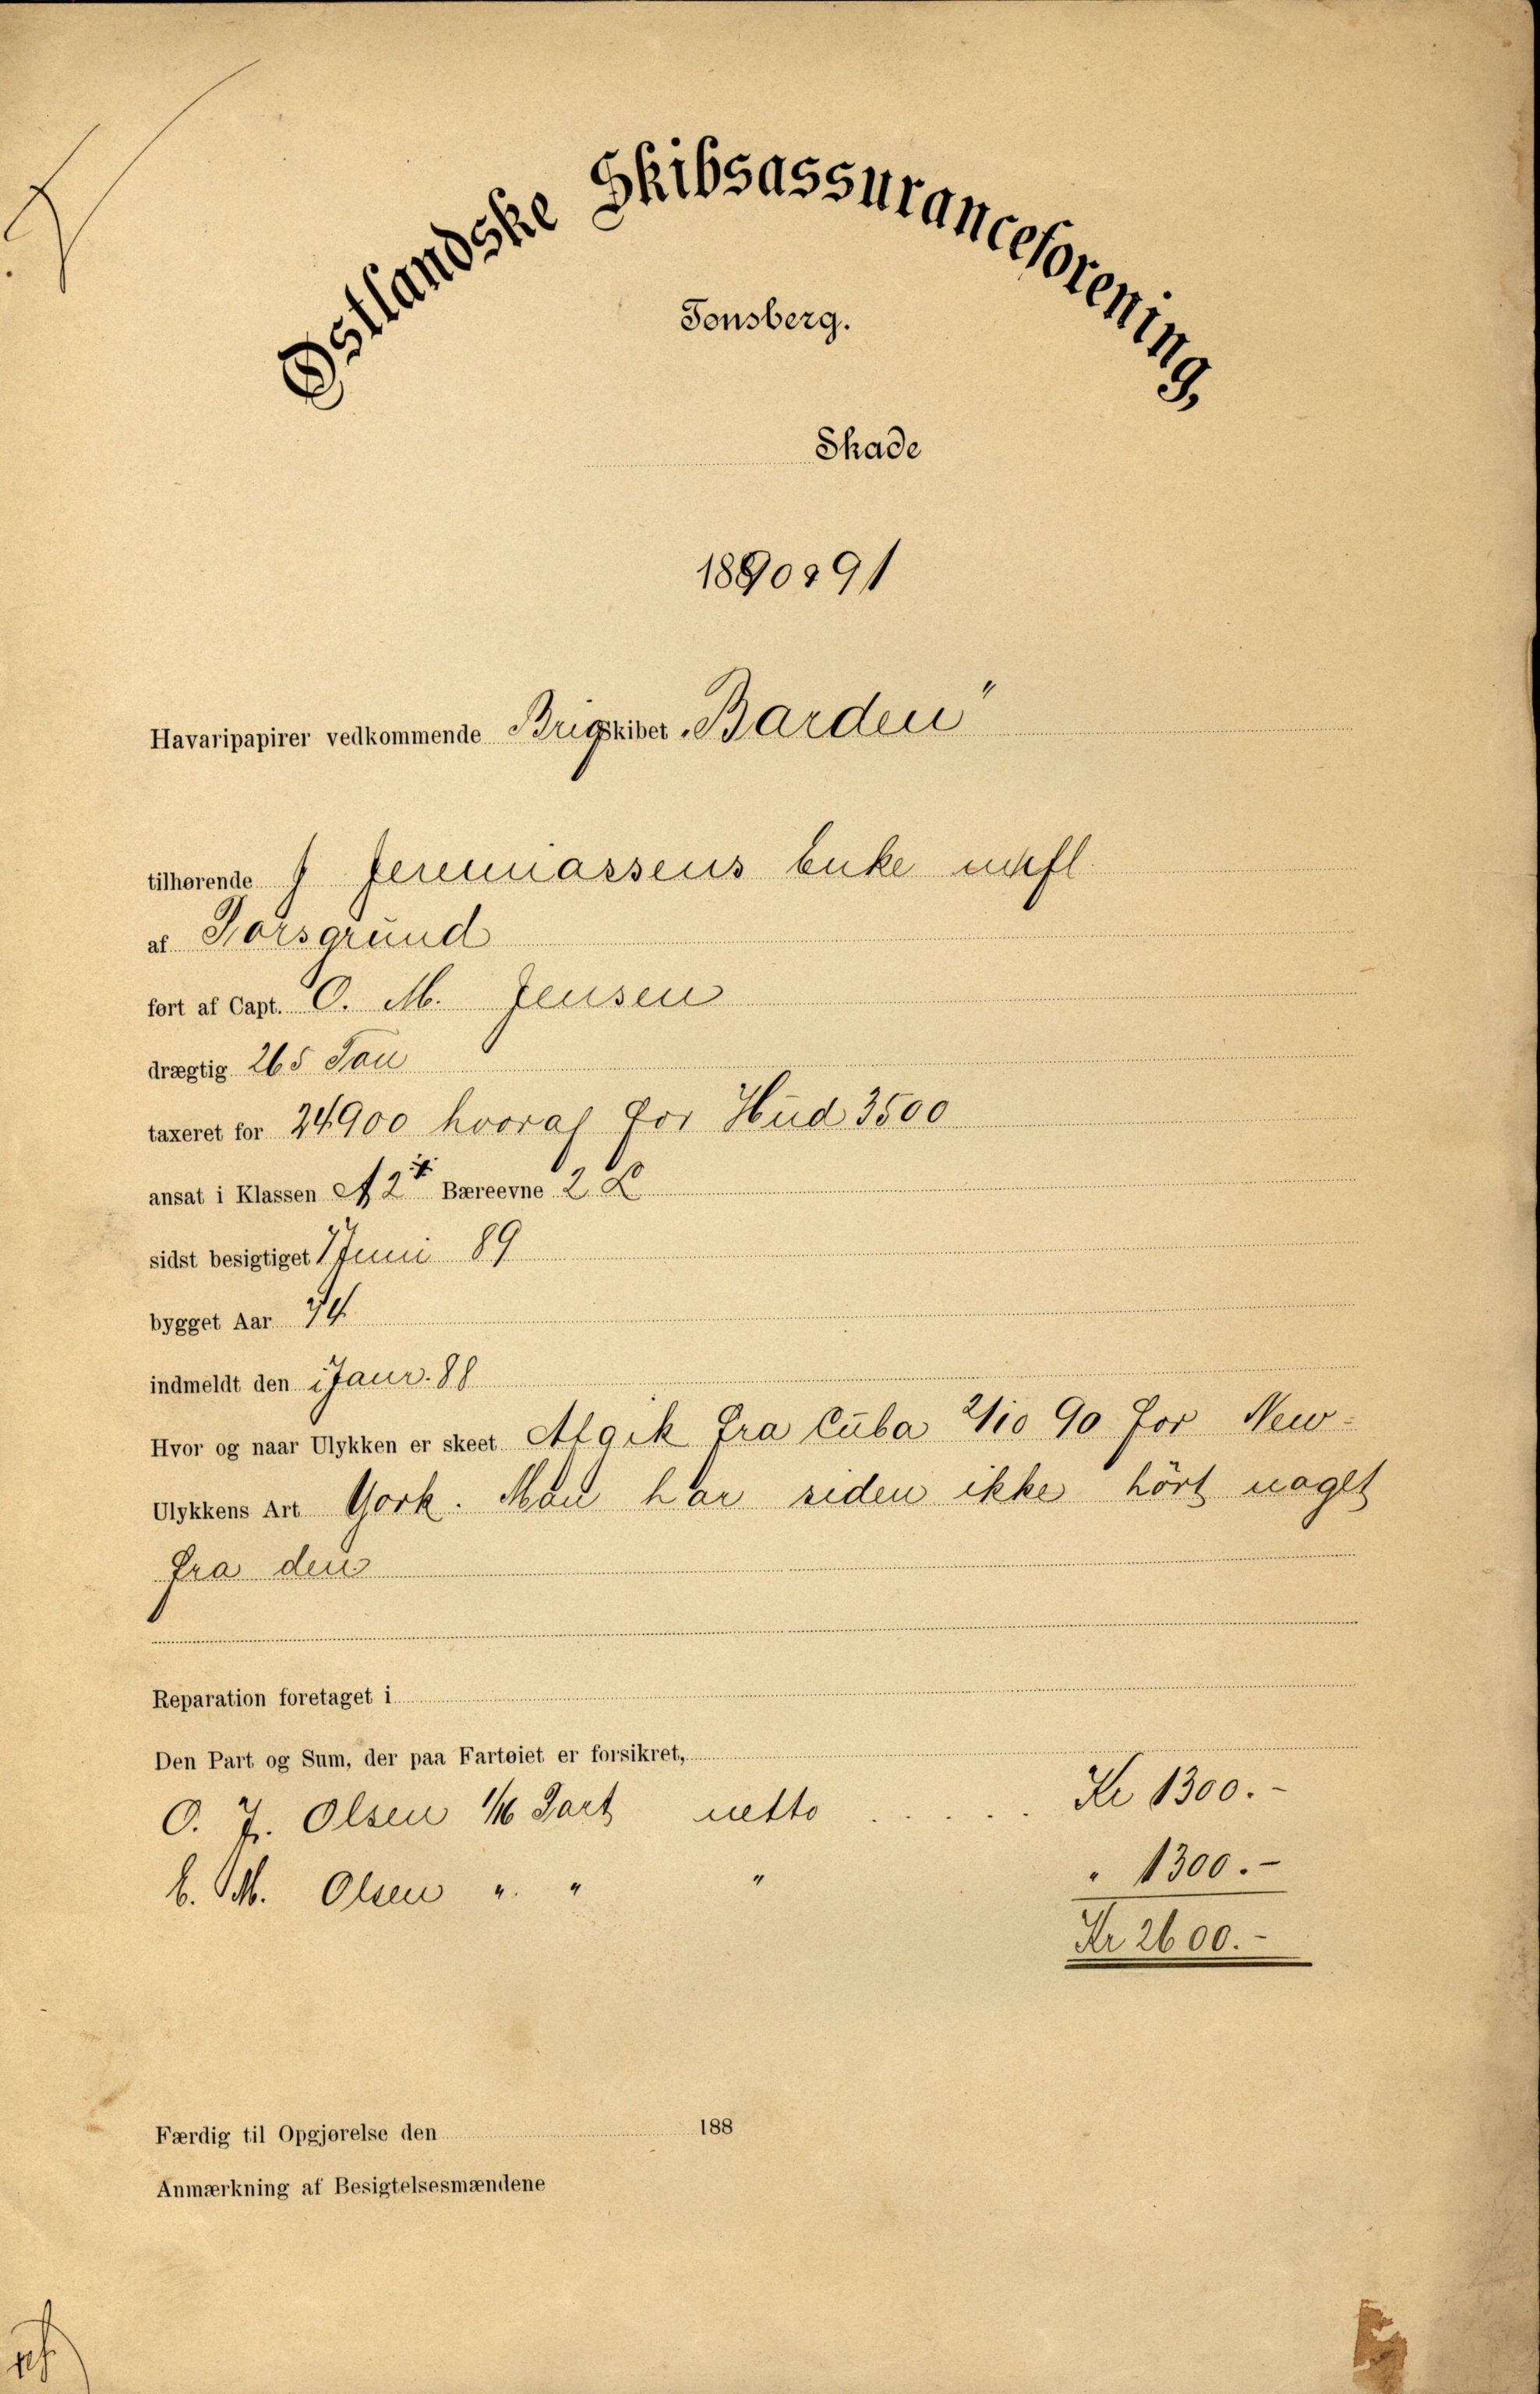 Østlandske Skibsassuranceforening,
Tønsberg.
Skade
1890 & 91
Havaripapirer vedkommende Brigskibet „Barden"
tilhørende J Jeremiassens Enke m fl.
af Porsgrund
ført af Capt. O. M. Jensen
drægtig 265 Ton
taxeret for 24900 hvoraf for Hud 3500
ansat i Klassen A 2 Bæreevne 2 L
sidst besigtiget Juni 89
bygget Aar 74
indmeldt den 1 Janr. 88
Hvor og naar Ulykken er skeet Afgik fra Cuba 2/10 90 for New-
Ulykkens Art York. Man har siden ikke hört noget
fra den
Reparation foretaget i
Den Part og Sum, der paa Fartøiet er forsikret,
O. J. Olsen 1/16 Part netto . . . . . Kr 1300.-
E. M. Olsen " " " " 1300.-
Kr 2600.-
Færdig til Opgjørelse den 188
Anmærkning af Besigtelsesmændene